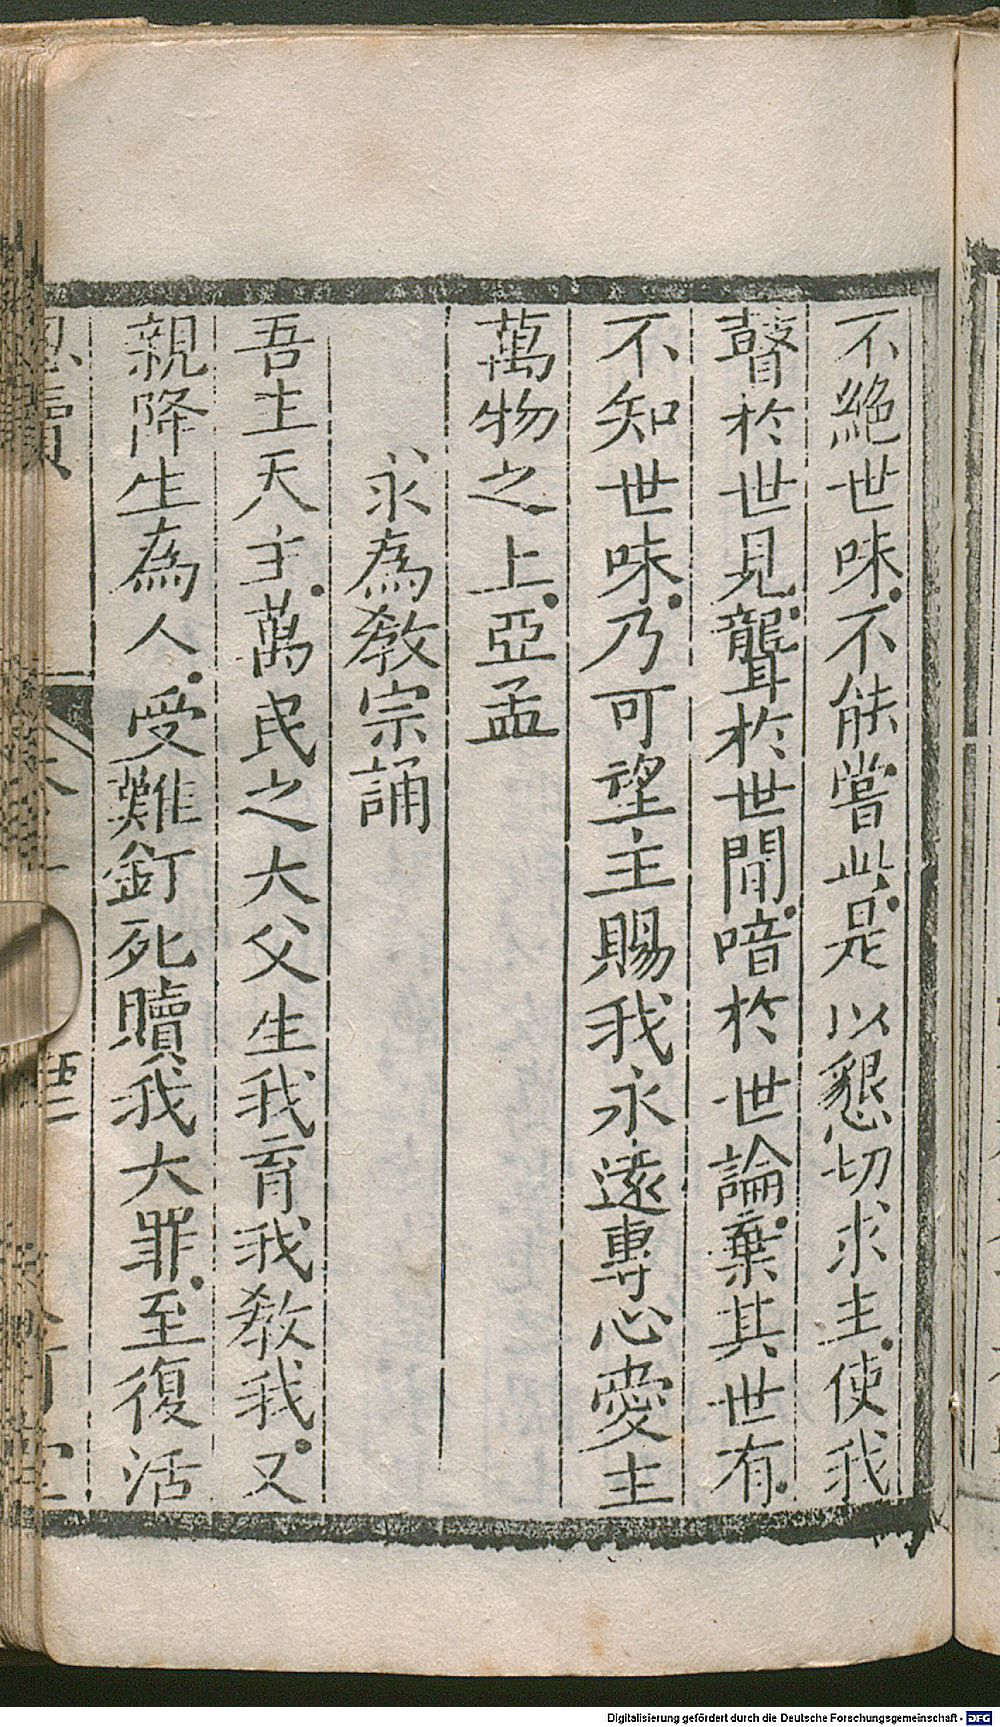 不絕世味.不能嘗此.是以懇切求主.使我
瞽於世見.聾於世聞.喑於世論.棄其世有.
不知世味.乃可望主賜我永遠專心愛主
萬物之上.亞孟
求為教宗誦
吾主天主.萬民之大父生我育我教我.又
親降生為人.受難釘死贖我大罪.至復活
Digitalisierung gefördert durch die Deutsche Forschungsgemeinschaft - DFG